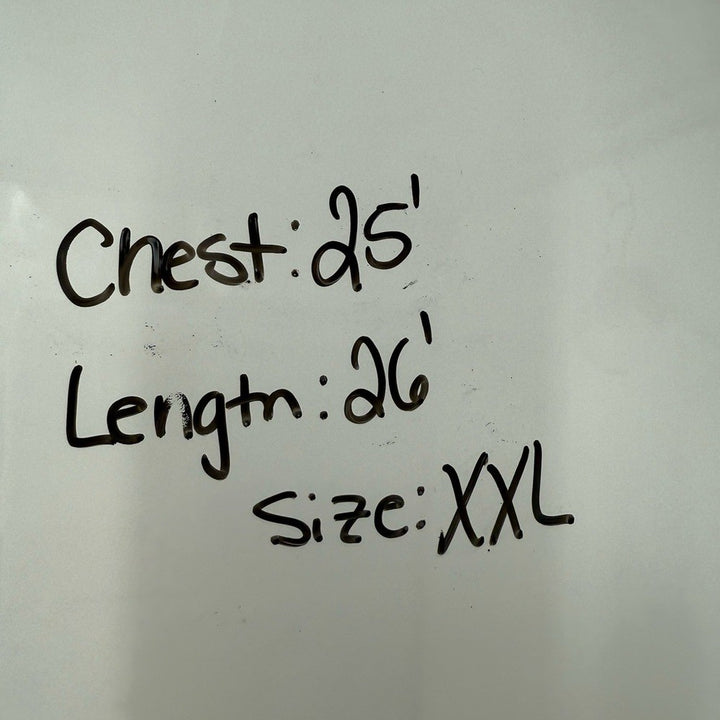 Chest: 25'
Length: 26'
Size: XXL